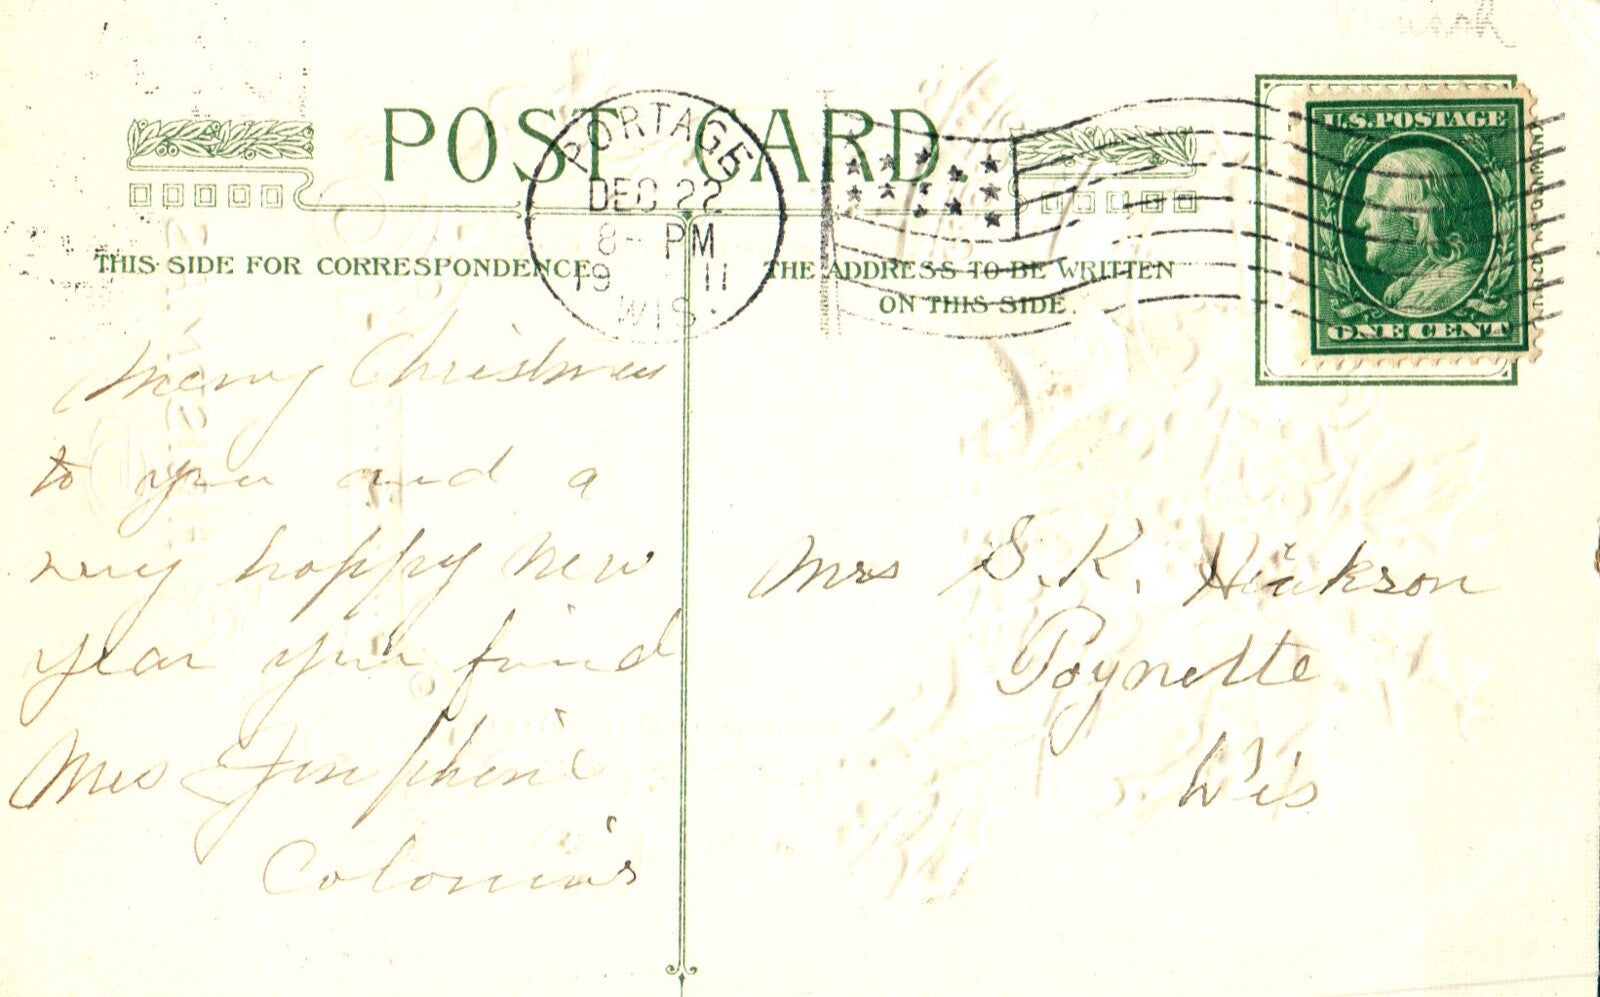 POST CARD
PORTAGE
DEC 22
8- PM
19 11
WIS.
THIS SIDE FOR CORRESPONDENCE
THE ADDRESS TO BE WRITTEN
ON THIS SIDE.
U.S. POSTAGE
ONE CENT
Merry Christmas
to you and a
very happy New
year your friend
Mrs Josephine
Mrs S. K.
Poynette
Wis